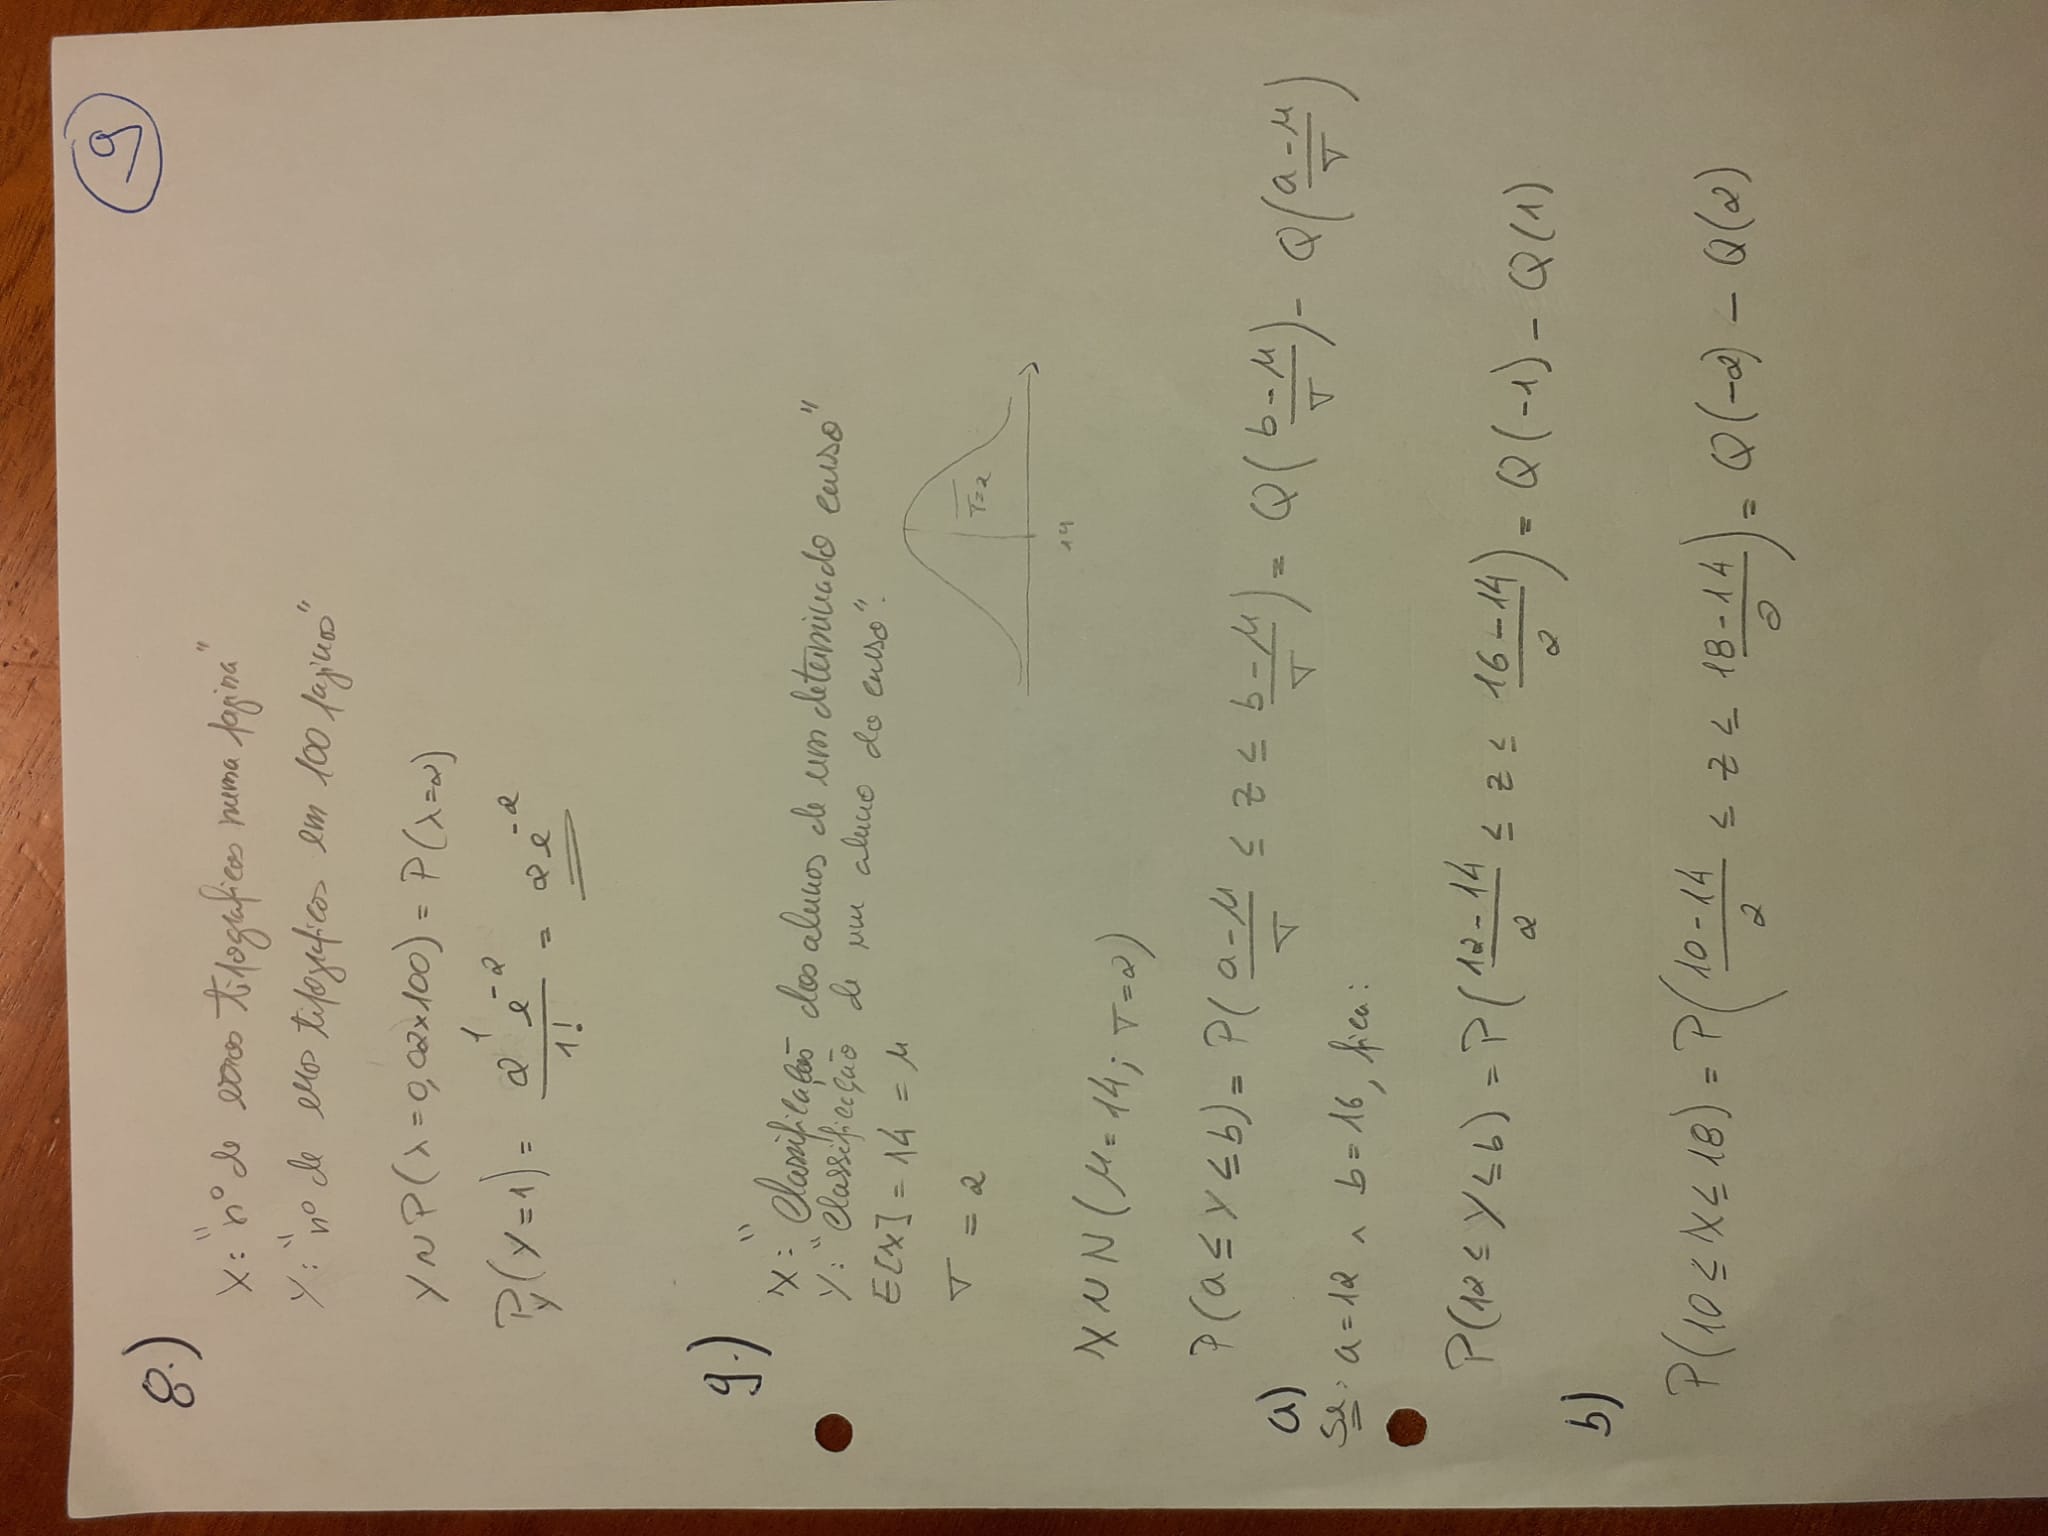 9
8.)
X: "nº de erros tipograficos numa pagina"
Y: "nº de erros tipograficos em 100 paginas"
Y ~ P(λ=0,02×100) = P(λ=2)
P_Y(Y=1) = 2^1 e^-2 / 1! = 2e^-2
9.)
X: "Classificação dos alunos de um determinado curso"
Y: "Classificação de um aluno do curso".
E[X] = 14 = μ
σ = 2
σ=2
14
X ~ N(μ=14; σ=2)
P(a ≤ Y ≤ b) = P((a-μ)/σ ≤ z ≤ (b-μ)/σ) = Q((b-μ)/σ) - Q((a-μ)/σ)
a)
Se: a=12 ∧ b=16, fica:
P(12 ≤ Y ≤ b) = P((12-14)/2 ≤ z ≤ (16-14)/2) = Q(-1) - Q(1)
b)
P(10 ≤ X ≤ 18) = P((10-14)/2 ≤ z ≤ (18-14)/2) = Q(-2) - Q(2)